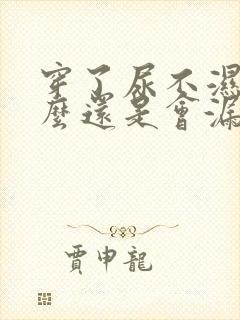 穿了尿不濕
麼還是會漏
賈申龍